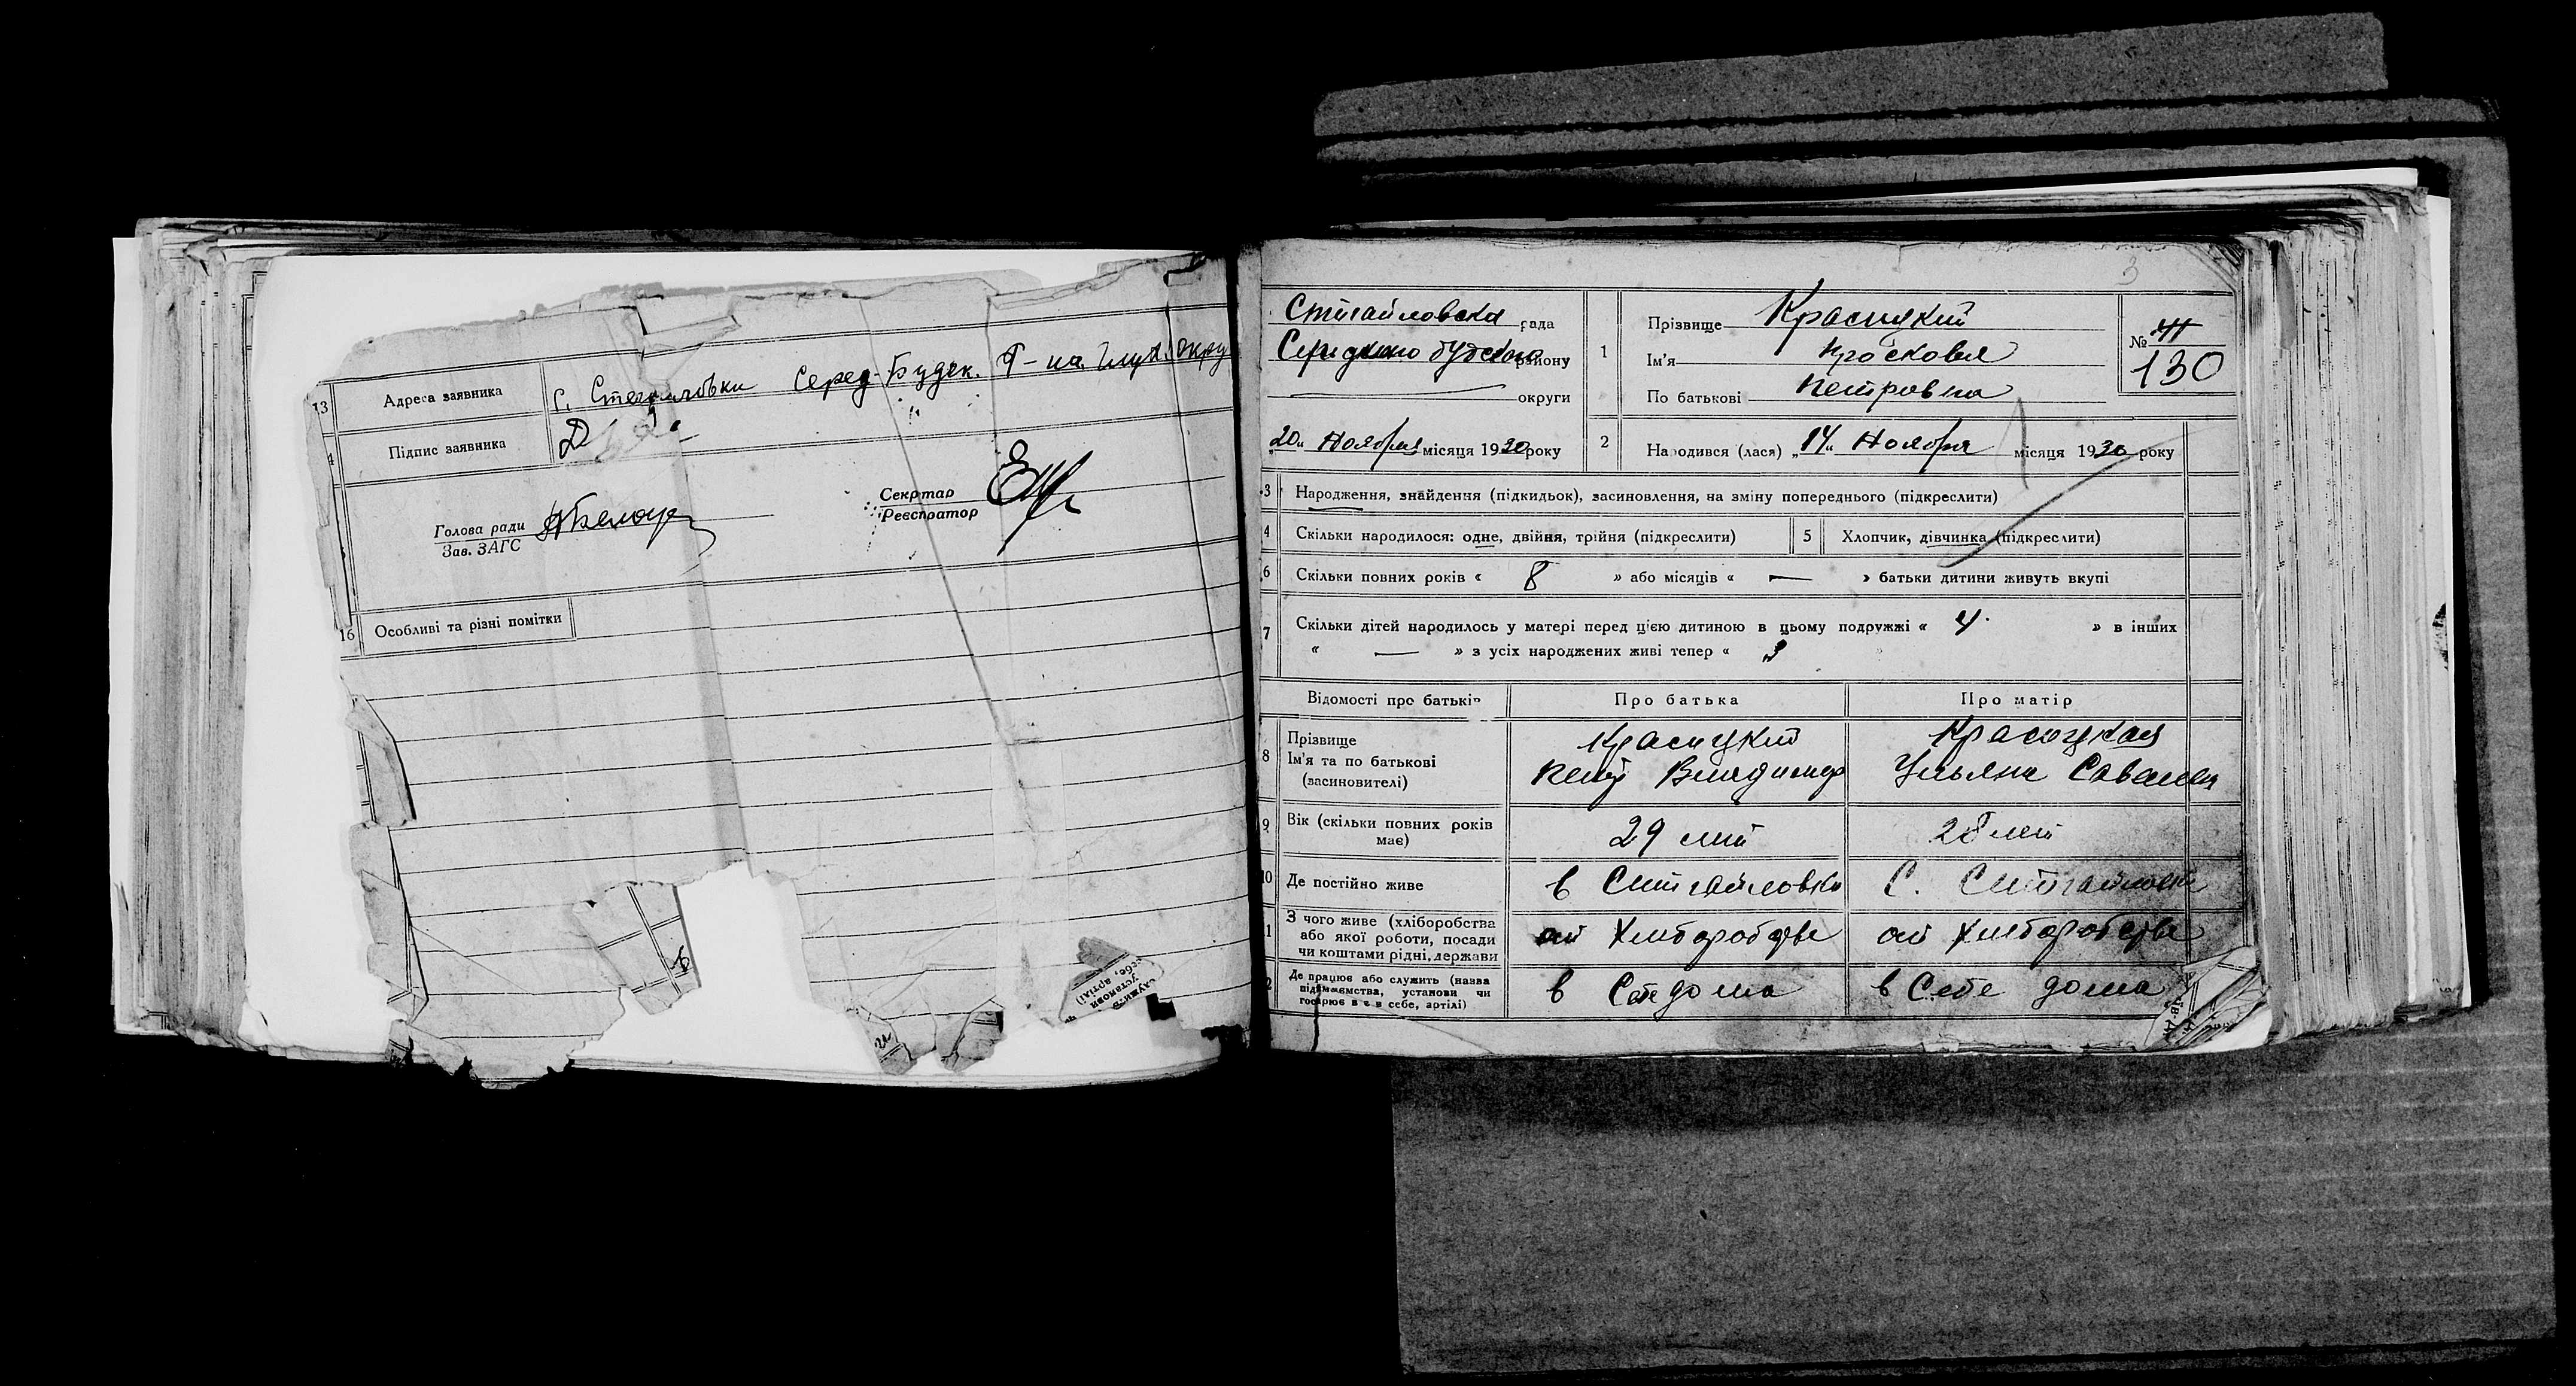 13 Адреса заявника с. Стегаиловки Серед-Будск. Р-на. Глух. Окру
Підпис заявника
Голова ради
Зав. ЗАГС
Секртар
Реєстратор
16 Особливі та різні помітки
3
Стигайловска рада
Середино Будскаго району
округи
„20„ Ноября місяця 1930 року
1 Прізвище Красицкий
Ім'я Просковья
По батькові Петровна
№ 41
130
2 Народився (лася) „14„ Ноября місяця 1930 року
3 Народження, знайдення (підкидьок), засиновлення, на зміну попереднього (підкреслити)
4 Скільки народилося: одне, двійня, трійня (підкреслити) 5 Хлопчик, дівчинка (підкреслити)
6 Скільки повних років « 8 » або місяців « — » батьки дитини живуть вкупі
7 Скільки дітей народилось у матері перед цією дитиною в цьому подружжі « 4 » в інших
« — » з усіх народжених живі тепер « 3
Відомості про батьків Про батька Про матір
8 Прізвище Красицкий Красицкая
Ім'я та по батькові Петр Владимир Ульяна Савельев
(засиновителі)
9 Вік (скільки повних років має) 29 лет 28 лет
10 Де постійно живе в Стигайловки С. Стигайловки
З чого живе (хліборобства або якої роботи, посади чи коштами рідні, держави от Хлиборобства от Хлиборобства
Де працює або служить (назва підприємства, установи чи господарює в себе, артілі) в Себе дома в Себе дома